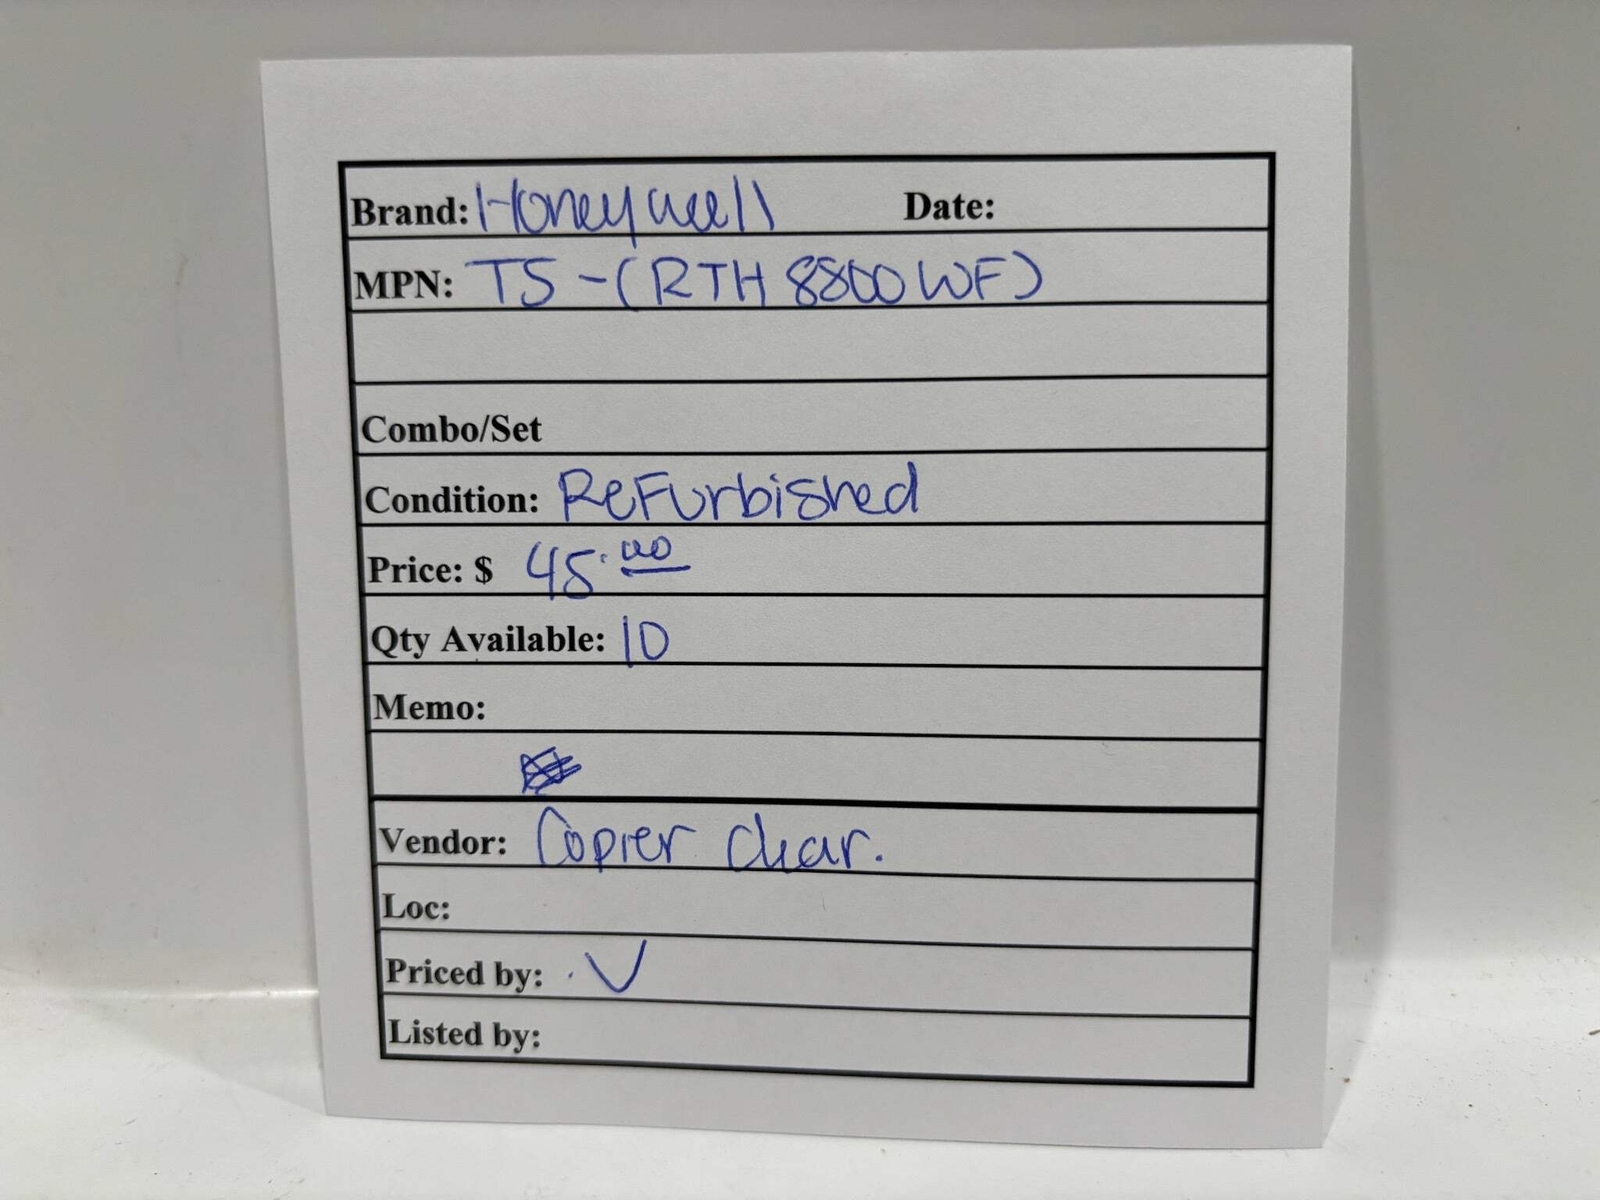 Brand: Honeywell Date:
MPN: TS-(RTH 8800 WF)
Combo/Set
Condition: ReFurbished
Price: $ 45.00
Qty Available: 10
Memo:
Vendor: Copier Clear.
Loc:
Priced by: V
Listed by: